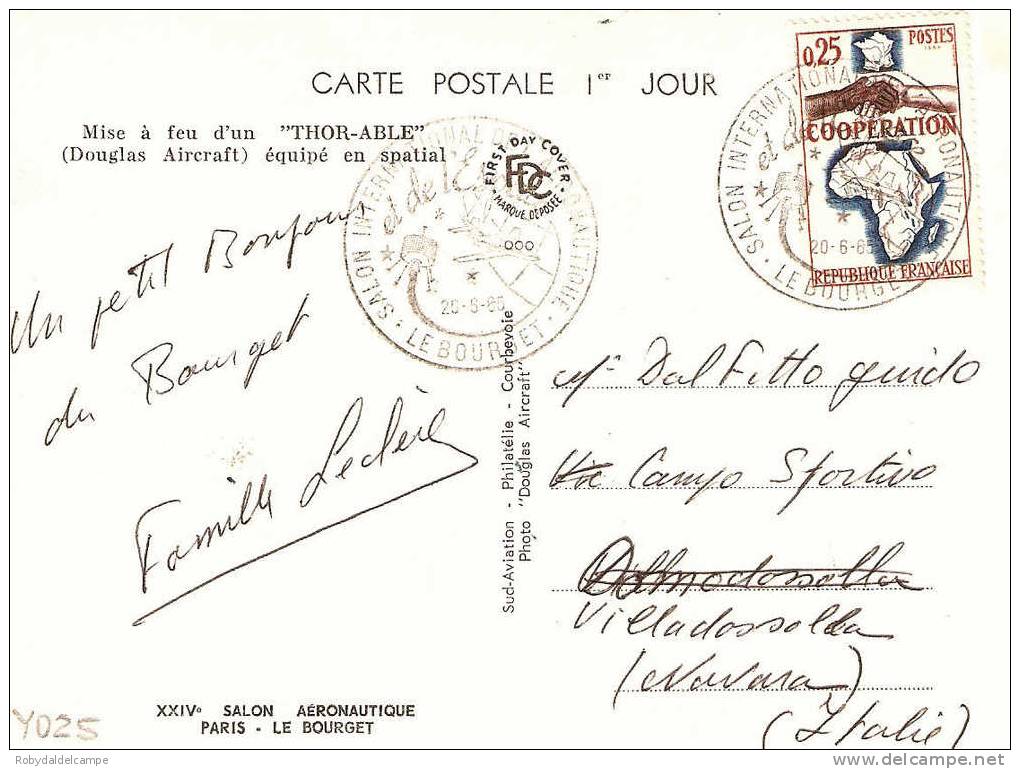 CARTE POSTALE 1er JOUR
Mise à feu d'un "THOR-ABLE"
(Douglas Aircraft) équipé en spatial
SALON INTERNATIONAL DE L'AÉRONAUTIQUE
et de l'E
20-6-65
LE BOURGET
FIRST DAY COVER
FDC
MARQUE DÉPOSÉE
000
0,25 POSTES
COOPÉRATION
REPUBLIQUE FRANÇAISE
SALON INTERNATIONAL DE L'AÉRONAUTIQUE
et de
20-6-65
LE BOURGET
Un petit Bonjour
du Bourget
Famille Leclère
Sud-Aviation - Philatélie - Courbevoie
Photo "Douglas Aircraft"
Mr Dal Fitto guido
Via Campo Sportivo
Villadossolla
(Novara)
(Italie)
XXIVe SALON AÉRONAUTIQUE
PARIS - LE BOURGET
YO25
Robydaldelcampe
www.delcampe.net